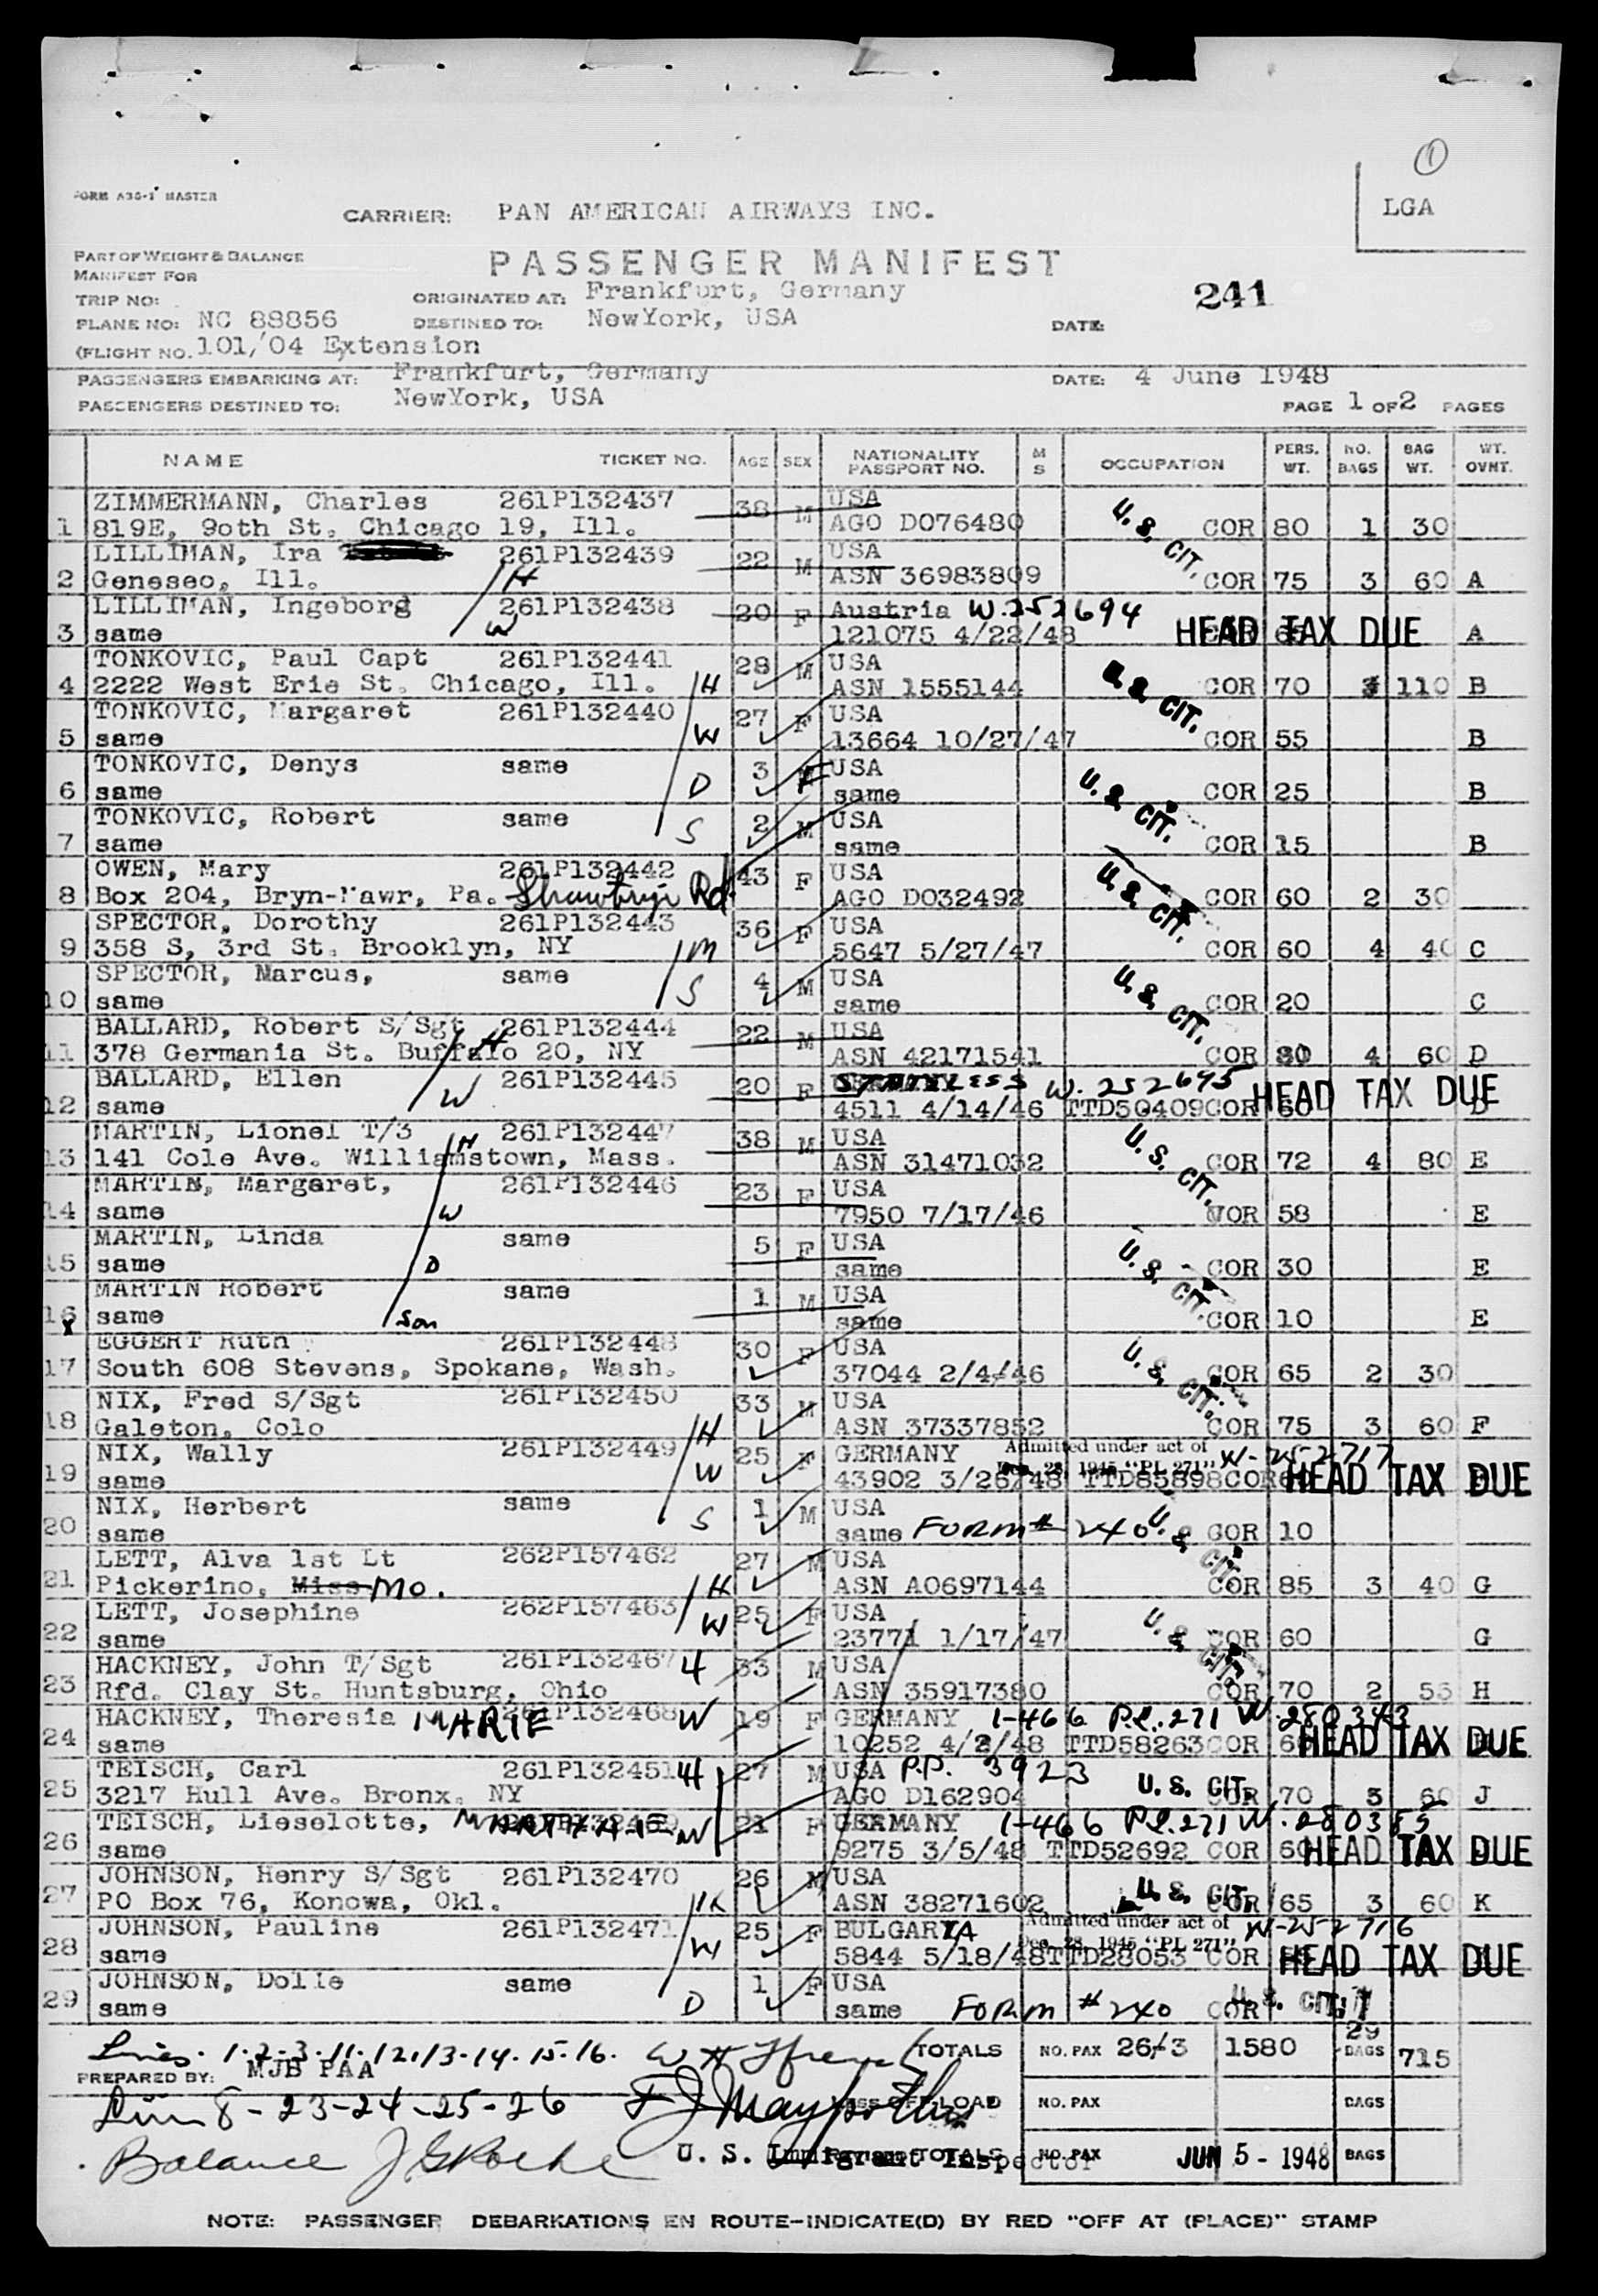 ①
FORM A36-1 MASTER
CARRIER: PAN AMERICAN AIRWAYS INC.
LGA
PART OF WEIGHT & BALANCE
MANIFEST FOR
PASSENGER MANIFEST
TRIP NO:
ORIGINATED AT: Frankfurt, Germany
241
PLANE NO: NC 88856
DESTINED TO: NewYork, USA
DATE:
(FLIGHT NO. 101/04 Extension
PASSENGERS EMBARKING AT: Frankfurt, Germany
DATE: 4 June 1948
PASSENGERS DESTINED TO: NewYork, USA
PAGE 1 OF 2 PAGES
NAME TICKET NO. AGE SEX NATIONALITY PASSPORT NO. M S OCCUPATION PERS. WT. NO. BAGS BAG WT. WT. OVNT.
ZIMMERMANN, Charles 261P132437 38 M USA
1 819E, 90th St. Chicago 19, Ill. AGO D076480 U.S. CIT. COR 80 1 30
LILLIMAN, Ira 261P132439 22 M USA
2 Geneseo, Ill. H ASN 36983809 COR 75 3 60 A
LILLIMAN, Ingeborg 261P132438 20 F Austria W.252694
3 same W 121075 4/22/48 HEAD TAX DUE A
TONKOVIC, Paul Capt 261P132441 28 M USA
4 2222 West Erie St. Chicago, Ill. H ASN 1555144 U.S. CIT. COR 70 110 B
TONKOVIC, Margaret 261P132440 27 F USA
5 same W 13664 10/27/47 COR 55 B
TONKOVIC, Denys same 3 F USA
6 same D same U.S. CIT. COR 25 B
TONKOVIC, Robert same 2 M USA
7 same S same COR 15 B
OWEN, Mary 261P132442 43 F USA
8 Box 204, Bryn-Mawr, Pa. Rd AGO D032492 U.S. CIT. COR 60 2 30
SPECTOR, Dorothy 261P132443 36 F USA
9 358 S, 3rd St. Brooklyn, NY M 5647 5/27/47 COR 60 4 40 C
SPECTOR, Marcus, same 4 M USA
10 same S same U.S. CIT. COR 20 C
BALLARD, Robert S/Sgt 261P132444 22 M USA
11 378 Germania St. Buffalo 20, NY H ASN 42171541 COR 80 4 60 D
BALLARD, Ellen 261P132445 20 F STATELESS W.252695
12 same W 4511 4/14/46 TTD50409 COR 60 HEAD TAX DUE D
MARTIN, Lionel T/3 261P132447 38 M USA
13 141 Cole Ave. Williamstown, Mass. H ASN 31471032 U.S. CIT. COR 72 4 80 E
MARTIN, Margaret, 261P132446 23 F USA
14 same W 7950 7/17/46 COR 58 E
MARTIN, Linda same 5 F USA
15 same D same U.S. CIT. COR 30 E
MARTIN Robert same 1 M USA
16 same Son same COR 10 E
EGGERT Ruth 261P132448 30 F USA
17 South 608 Stevens, Spokane, Wash. 37044 2/4/46 U.S. CIT. COR 65 2 30
NIX, Fred S/Sgt 261P132450 33 M USA
18 Galeton, Colo H ASN 37337852 COR 75 3 60 F
NIX, Wally 261P132449 25 F GERMANY Admitted under act of W-252717
19 same W 43902 3/26/48 Dec. 28, 1945 "PL 271" TTD85898 COR HEAD TAX DUE
NIX, Herbert same 1 M USA
20 same S same FORM # 240 U.S. CIT. COR 10
LETT, Alva 1st Lt 262P157462 27 M USA
21 Pickerino, Miss Mo. H ASN A0697144 COR 85 3 40 G
LETT, Josephine 262P157463 25 F USA
22 same W 23771 1/17/47 U.S. CIT. COR 60 G
HACKNEY, John T/Sgt 261P132467 H 33 M USA
23 Rfd. Clay St. Huntsburg, Ohio ASN 35917380 COR 70 2 55 H
HACKNEY, Theresia MARIE 261P132468 W 19 F GERMANY 1-466 P.L.271 W.280343
24 same 10252 4/2/48 TTD58263 COR HEAD TAX DUE
TEISCH, Carl 261P132451 H 27 M USA P.P. 3923
25 3217 Hull Ave. Bronx, NY AGO D162904 U.S. CIT. COR 70 3 60 J
TEISCH, Lieselotte, W 21 F GERMANY 1-466 P.L.271 W.280385
26 same 9275 3/5/48 TTD52692 COR 60 HEAD TAX DUE
JOHNSON, Henry S/Sgt 261P132470 26 M USA
27 PO Box 76, Konowa, Okl. H ASN 38271602 U.S. CIT. COR 65 3 60 K
JOHNSON, Pauline 261P132471 25 F BULGARIA Admitted under act of W-252716
28 same W 5844 5/18/48 Dec. 28, 1945 "PL 271" TTD28053 COR HEAD TAX DUE
JOHNSON, Dolle same 1 F USA
29 same D same FORM # 240 COR U.S. CIT.
Lines. 1-2-3-11-12-13-14-15-16.
TOTALS NO. PAX 26/3 1580 29 BAGS 715
PREPARED BY: MJB PAA
Line 8-23-24-25-26 LESS OFF LOAD NO. PAX BAGS
Balance
U. S. Immigrant Inspector TOTALS NO. PAX JUN 5 - 1948 BAGS
NOTE: PASSENGER DEBARKATIONS EN ROUTE-INDICATE(D) BY RED "OFF AT (PLACE)" STAMP